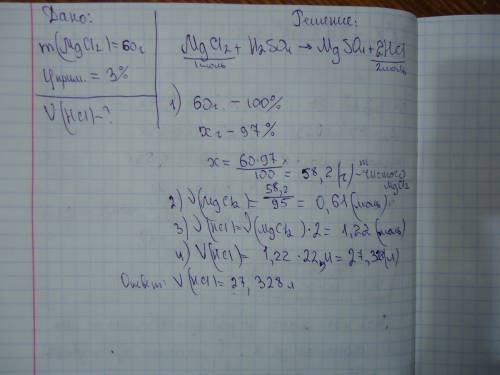 Дано:
m(MgCl2)=60г
φприм. = 3%
V(HCl)-?
Решение:
MgCl2 + H2SO4 → MgSO4 + 2HCl
1моль 2моль
1) 60г. – 100%
xг – 97%
x = 60·97 / 100 = 58,2(г) – m чистого MgCl2
2) ν(MgCl2) = 58,2 / 95 = 0,61(моль)
3) ν(HCl)=ν(MgCl2)·2 = 1,22(моль)
4) V(HCl)= 1,22·22,4= 27,328(л)
Ответ: V(HCl)=27,328л